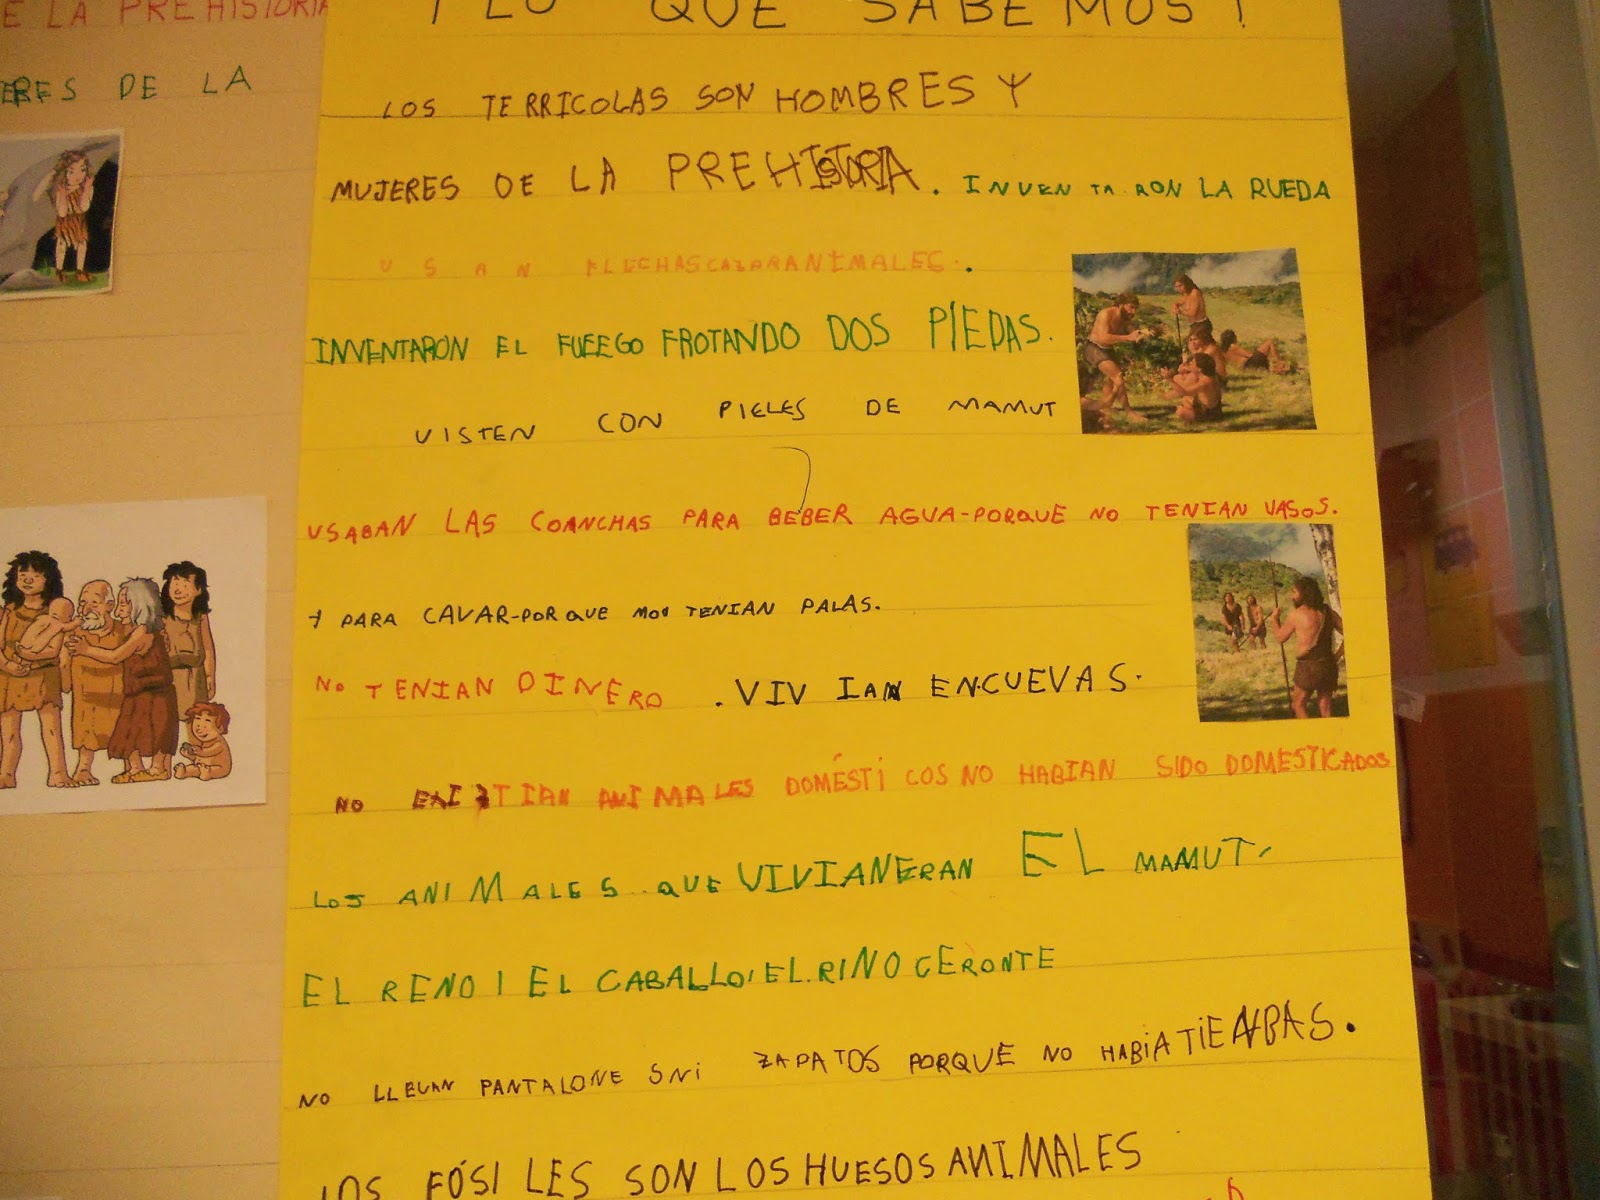 E LA PREHISTORIA
ERES DE LA
¡LO QUE SABEMOS!
LOS TERRICOLAS SON HOMBRES Y
MUJERES DE LA PREHISTORIA. INVENTARON LA RUEDA
USAN FLECHASCAZARANIMALES.
INVENTARON EL FUEEGO FROTANDO DOS PIEDAS.
VISTEN CON PIELES DE MAMUT
USABAN LAS COANCHAS PARA BEBER AGUA-PORQUE NO TENIAN VASOS.
Y PARA CAVAR-PORQUE NO TENIAN PALAS.
NO TENIAN DINERO .VIVIAN EN CUEVAS.
NO EXISTIAN ANIMALES DOMÉSTICOS NO HABIAN SIDO DOMESTICADOS
LOS ANIMALES QUE VIVIANERAN EL MAMUT,
EL RENO, EL CABALLO, EL RINOCERONTE
NO LLEVAN PANTALONE SNI ZAPATOS PORQUE NO HABIA TIENDAS.
LOS FÓSILES SON LOS HUESOS ANIMALES